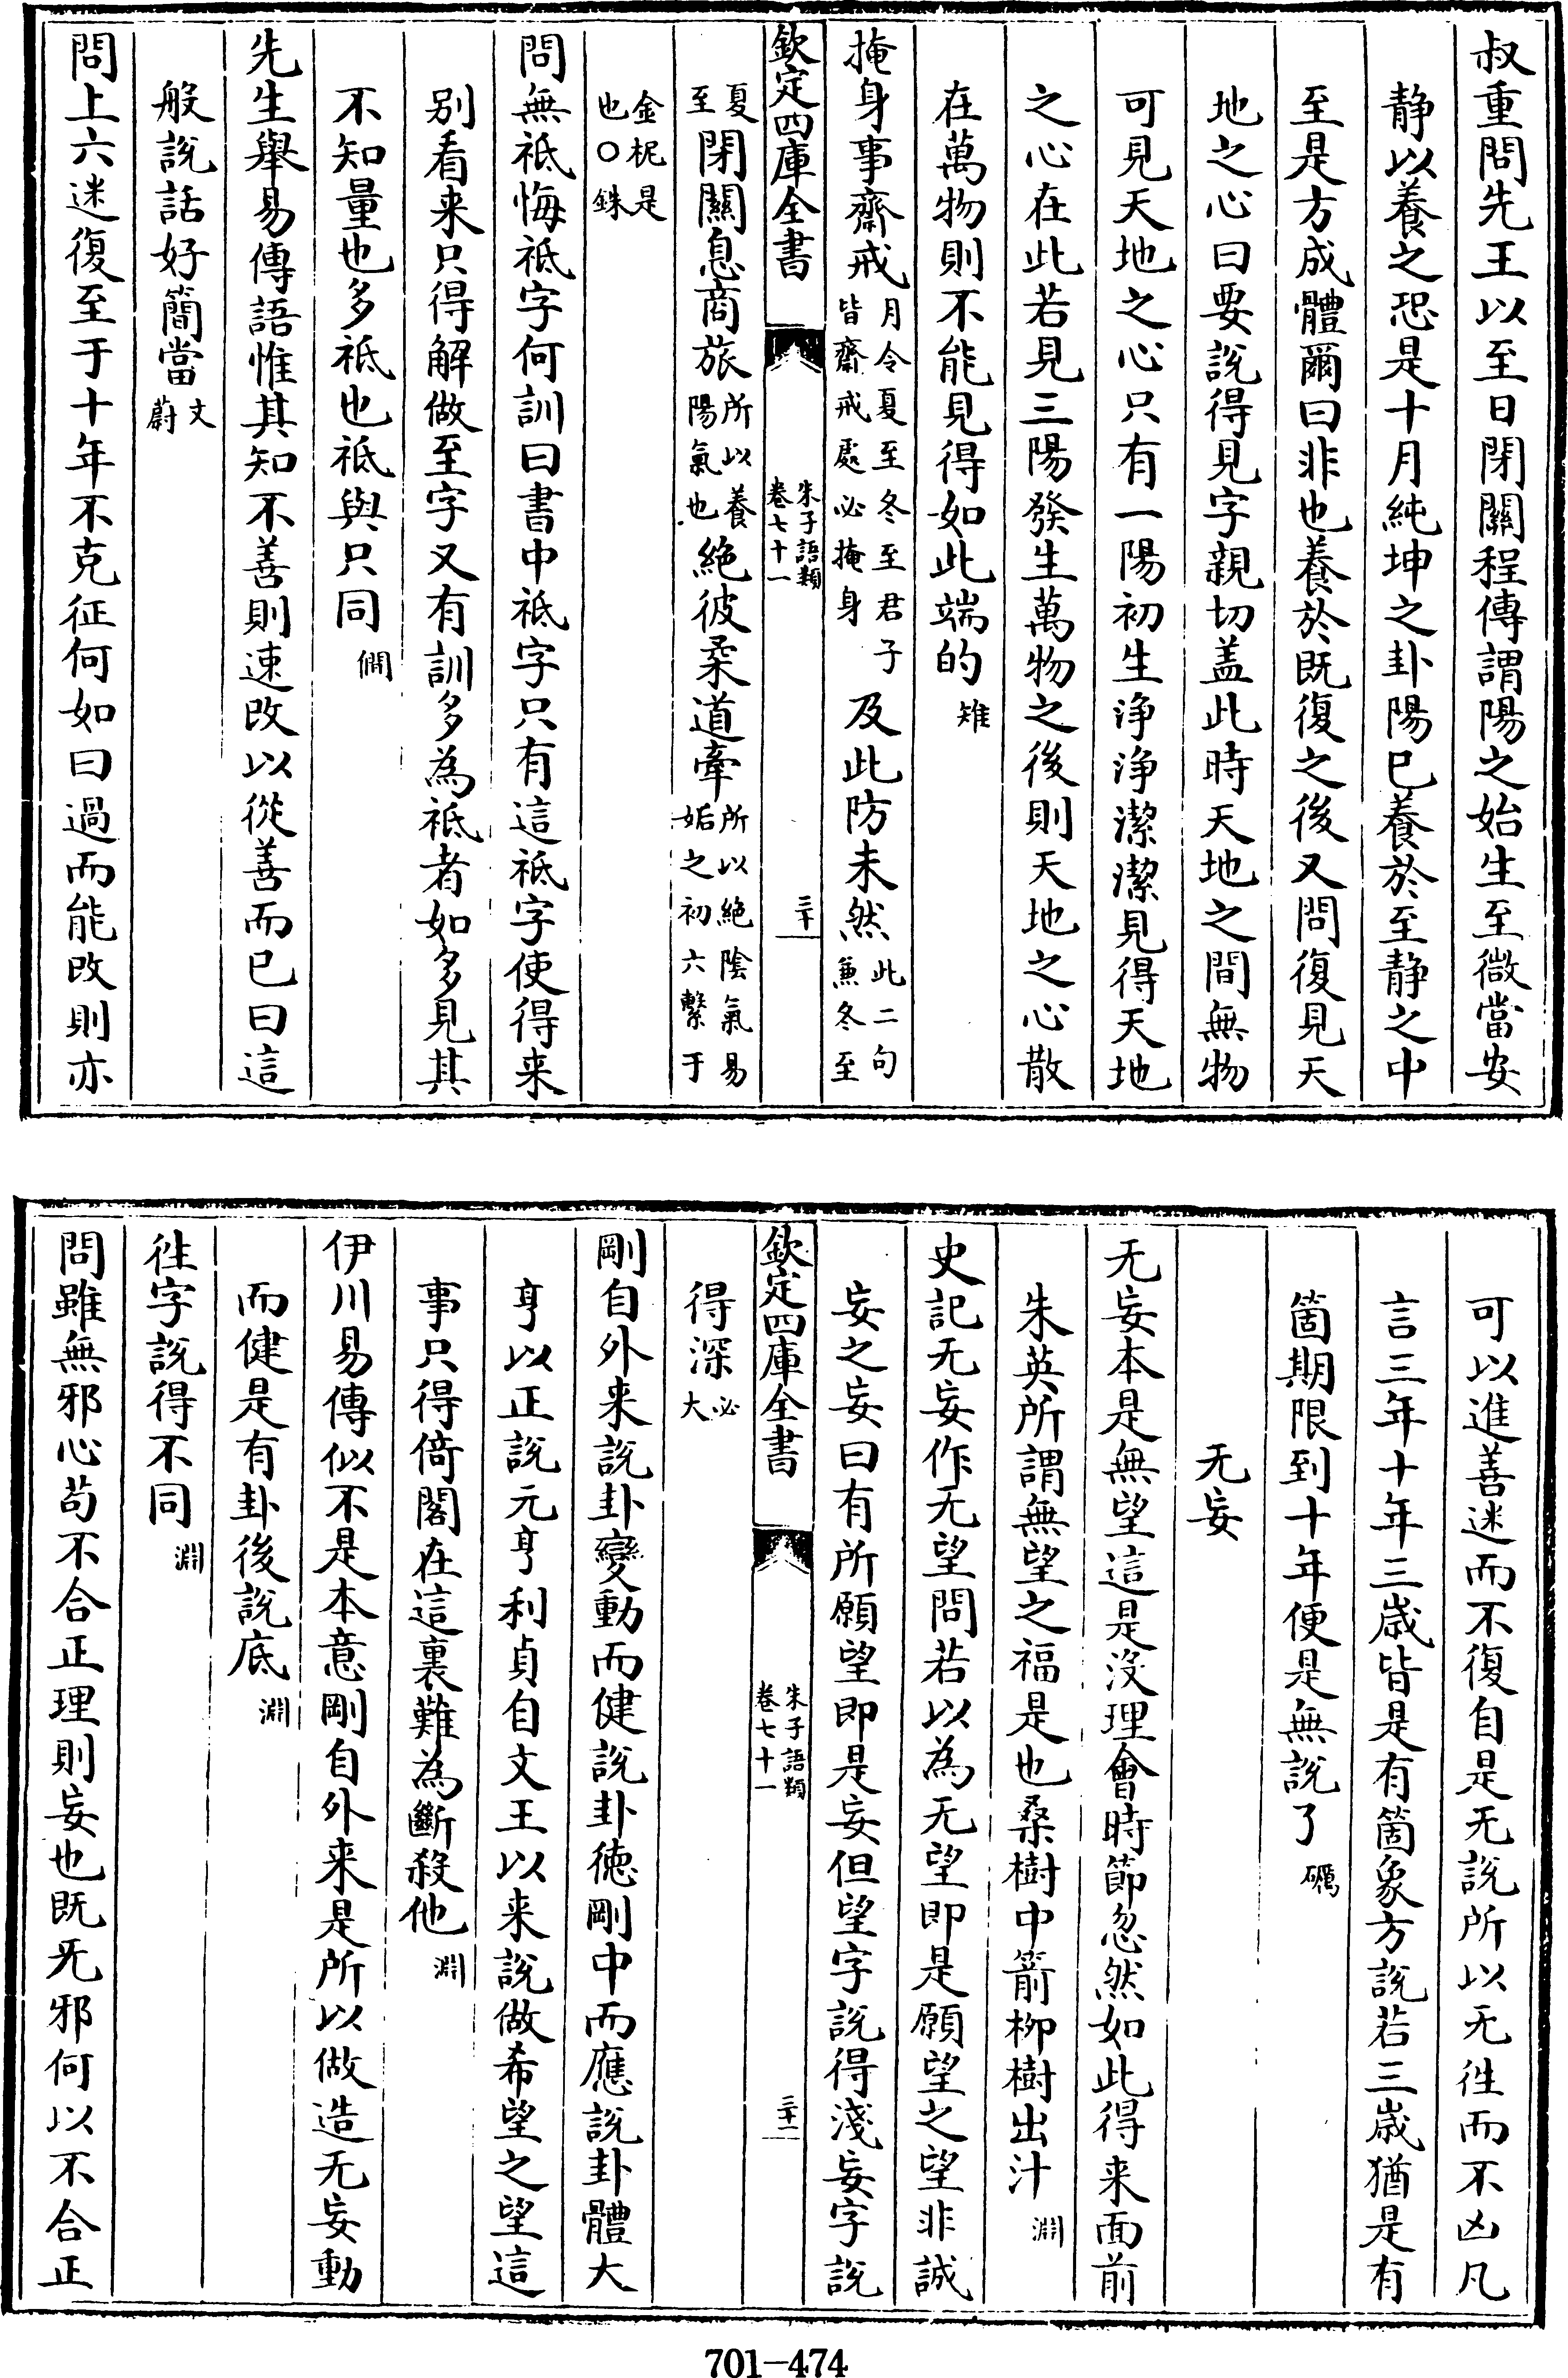 叔重問先王以至日閉關程傳謂陽之始生至微當安
静以養之恐是十月純坤之卦陽已養於至静之中
至是方成體爾曰非也養於既復之後又問復見天
地之心曰要說得見字親切盖此時天地之間無物
可見天地之心只有一陽初生浄浄潔潔見得天地
之心在此若見三陽發生萬物之後則天地之心散
在萬物則不能見得如此端的 雉
掩身事齋戒 月令夏至冬至君子皆齋戒處必掩身 及此防未然 此二句兼冬至
欽定四庫全書 朱子語類卷七十一 三十
夏至 閉關息商旅 所以養陽氣也 絶彼柔道牽 所以絶陰氣易姤之初六繫于
金柅是也○銖
問無祗悔祗字何訓曰書中祗字只有這祗字使得来
别看来只得解做至字又有訓多為祗者如多見其
不知量也多祗也祗與只同 僩
先生舉易傳語惟其知不善則速改以從善而已曰這
般說話好簡當 文蔚
問上六迷復至于十年不克征何如曰過而能改則亦
可以進善迷而不復自是无說所以无徃而不凶凡
言三年十年三歳皆是有箇象方說若三歳猶是有
箇期限到十年便是無說了 礪
无妄
无妄本是無望這是沒理會時節忽然如此得来面前
朱英所謂無望之福是也桑樹中箭柳樹出汁 淵
史記无妄作无望問若以為无望即是願望之望非誠
妄之妄曰有所願望即是妄但望字說得淺妄字說
欽定四庫全書 朱子語類卷七十一 三十一
得深 必大
剛自外来說卦變動而健說卦徳剛中而應說卦體大
亨以正說元亨利貞自文王以来說做希望之望這
事只得倚閣在這裏難為斷殺他 淵
伊川易傳似不是本意剛自外来是所以做造无妄動
而健是有卦後說底 淵
徃字說得不同 淵
問雖無邪心苟不合正理則妄也既旡邪何以不合正
701-474